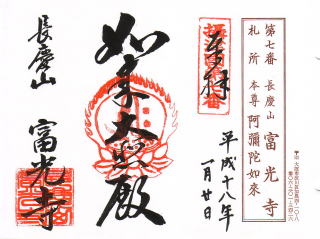 第七番 長慶山 富光寺
札所 本尊 阿彌陀如來
奉拜
平成十八年
一月廿日
如来大宝殿
長慶山
富光寺